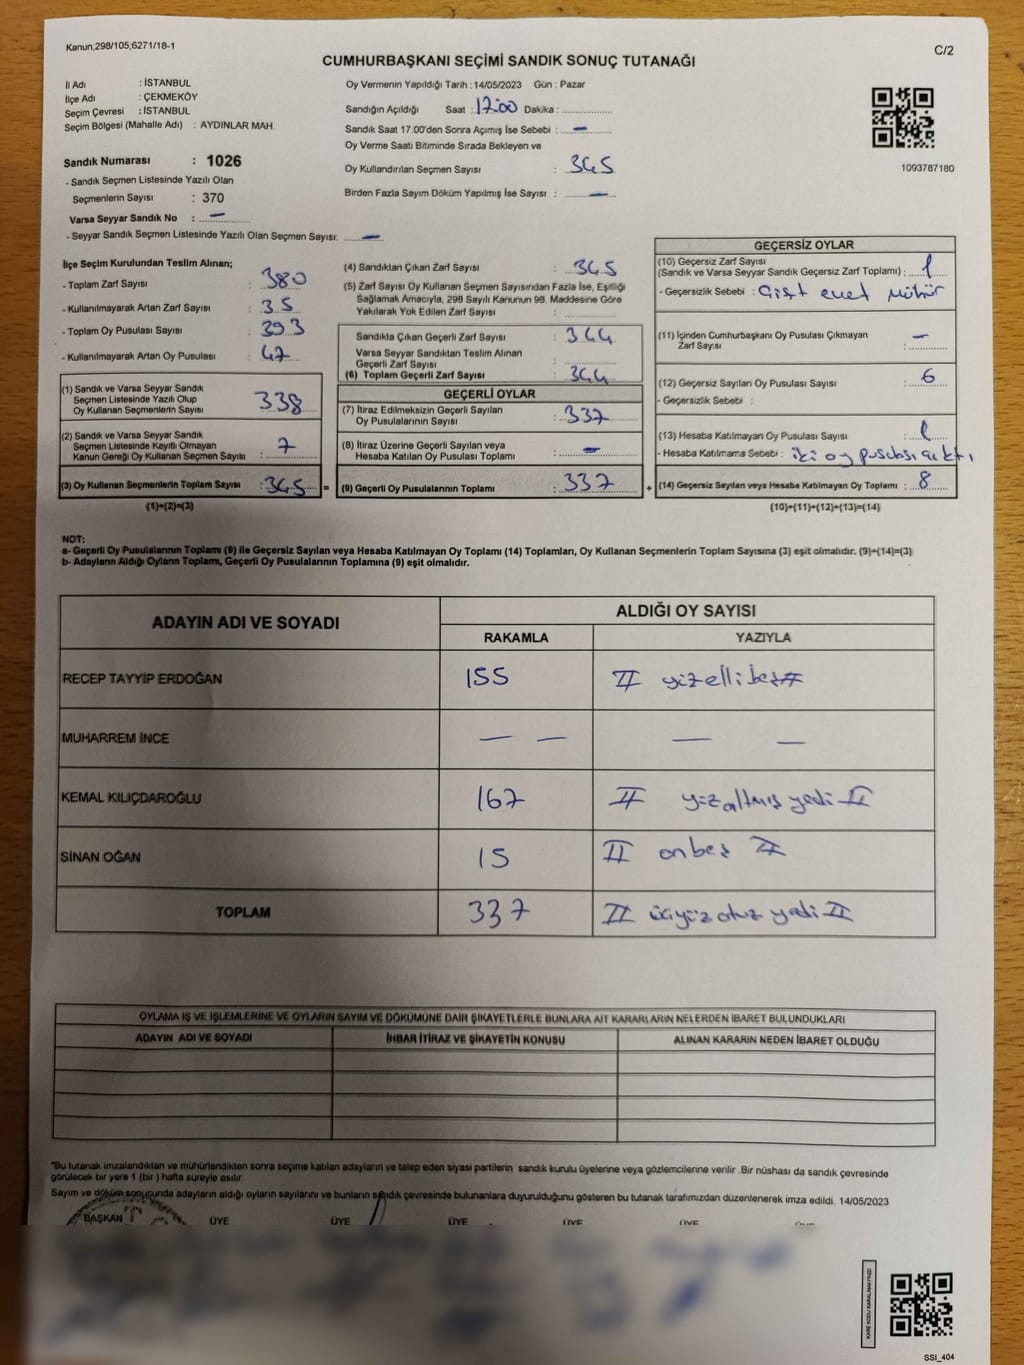 Kanun;298/105;6271/18-1
C/2
CUMHURBAŞKANI SEÇİMİ SANDIK SONUÇ TUTANAĞI
İl Adı : İSTANBUL
İlçe Adı : ÇEKMEKÖY
Seçim Çevresi : İSTANBUL
Seçim Bölgesi (Mahalle Adı) : AYDINLAR MAH.
Sandık Numarası : 1026
- Sandık Seçmen Listesinde Yazılı Olan
Seçmenlerin Sayısı : 370
Varsa Seyyar Sandık No : —
- Seyyar Sandık Seçmen Listesinde Yazılı Olan Seçmen Sayısı: —
Oy Vermenin Yapıldığı Tarih : 14/05/2023 Gün : Pazar
Sandığın Açıldığı Saat : 17:00 Dakika : ..............
Sandık Saat 17.00'den Sonra Açımış İse Sebebi : —
Oy Verme Saati Bitiminde Sırada Bekleyen ve
Oy Kullandırılan Seçmen Sayısı : 345
Birden Fazla Sayım Döküm Yapılmış İse Sayısı : —
1093787180
İlçe Seçim Kurulundan Teslim Alınan;
- Toplam Zarf Sayısı : 380
- Kullanılmayarak Artan Zarf Sayısı : 35
- Toplam Oy Pusulası Sayısı : 393
- Kullanılmayarak Artan Oy Pusulası : 47
(1) Sandık ve Varsa Seyyar Sandık
Seçmen Listesinde Yazılı Olup
Oy Kullanan Seçmenlerin Sayısı 338
(2) Sandık ve Varsa Seyyar Sandık
Seçmen Listesinde Kayıtlı Olmayan
Kanun Gereği Oy Kullanan Seçmen Sayısı : 7
(3) Oy Kullanan Seçmenlerin Toplam Sayısı : 345 =
(1)+(2)=(3)
(4) Sandıktan Çıkan Zarf Sayısı : 345
(5) Zarf Sayısı Oy Kullanan Seçmen Sayısından Fazla İse, Eşitliği
Sağlamak Amacıyla, 298 Sayılı Kanunun 98. Maddesine Göre
Yakılarak Yok Edilen Zarf Sayısı :
Sandıkta Çıkan Geçerli Zarf Sayısı : 344
Varsa Seyyar Sandıktan Teslim Alınan
Geçerli Zarf Sayısı :
(6) Toplam Geçerli Zarf Sayısı : 344
GEÇERLİ OYLAR
(7) İtiraz Edilmeksizin Geçerli Sayılan
Oy Pusulalarının Sayısı : 337
(8) İtiraz Üzerine Geçerli Sayılan veya
Hesaba Katılan Oy Pusulası Toplamı : —
(9) Geçerli Oy Pusulalarının Toplamı : 337 +
GEÇERSİZ OYLAR
(10) Geçersiz Zarf Sayısı
(Sandık ve Varsa Seyyar Sandık Geçersiz Zarf Toplamı) : 1
- Geçersizlik Sebebi : Çift evet mühür
(11) İçinden Cumhurbaşkanı Oy Pusulası Çıkmayan
Zarf Sayısı : —
(12) Geçersiz Sayılan Oy Pusulası Sayısı : 6
- Geçersizlik Sebebi :
(13) Hesaba Katılmayan Oy Pusulası Sayısı : 1
- Hesaba Katılmama Sebebi : iki oy pusulası çıktı
(14) Geçersiz Sayılan veya Hesaba Katılmayan Oy Toplamı : 8
(10)+(11)+(12)+(13)=(14)
NOT:
a- Geçerli Oy Pusulalarının Toplamı (9) ile Geçersiz Sayılan veya Hesaba Katılmayan Oy Toplamı (14) Toplamları, Oy Kullanan Seçmenlerin Toplam Sayısına (3) eşit olmalıdır. (9)+(14)=(3)
b- Adayların Aldığı Oyların Toplamı, Geçerli Oy Pusulalarının Toplamına (9) eşit olmalıdır.
ADAYIN ADI VE SOYADI ALDIĞI OY SAYISI
RAKAMLA YAZIYLA
RECEP TAYYİP ERDOĞAN 155 yüzellibeş
MUHARREM İNCE — — — —
KEMAL KILIÇDAROĞLU 167 yüzaltmış yedi
SİNAN OĞAN 15 onbeş
TOPLAM 337 üçyüz otuz yedi
OYLAMA İŞ VE İŞLEMLERİNE VE OYLARIN SAYIM VE DÖKÜMÜNE DAİR ŞİKAYETLERLE BUNLARA AİT KARARLARIN NELERDEN İBARET BULUNDUKLARI
ADAYIN ADI VE SOYADI İHBAR İTİRAZ VE ŞİKAYETİN KONUSU ALINAN KARARIN NEDEN İBARET OLDUĞU
*Bu tutanak imzalandıktan ve mühürlendikten sonra seçime katılan adayların ve talep eden siyasi partilerin sandık kurulu üyelerine veya gözlemcilerine verilir .Bir nüshası da sandık çevresinde
görülecek bir yere 1 (bir ) hafta süreyle asılır.
Sayım ve döküm sonucunda adayların aldığı oyların sayılarını ve bunların sandık çevresinde bulunanlara duyurulduğunu gösteren bu tutanak tarafımızdan düzenlenerek imza edildi. 14/05/2023
BAŞKAN ÜYE ÜYE ÜYE ÜYE ÜYE
KARE KODU KARALAMAYINIZ!
SSI_404